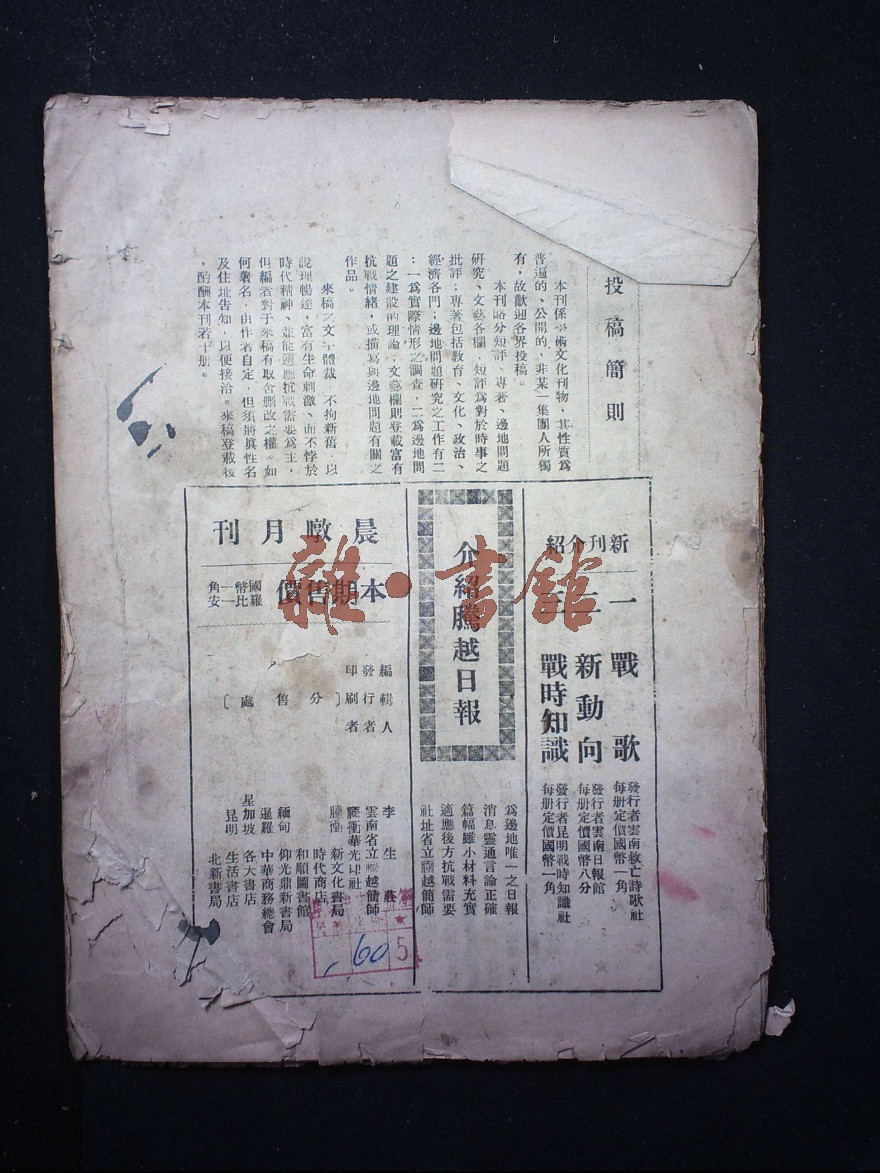 投稿簡則
本刊係學術文化刊物，其性質為
普遍的、公開的，非某一集團人所獨
有，故歡迎各界投稿。
本刊略分短評、專著、邊地問題
研究、文藝各欄，短評為對於時事之
批評；專著包括教育、文化、政治、
經濟各門；邊地問題研究之工作有二
：一為實際情形之調查，二為邊地問
題之建設的理論；文藝欄則登載富有
抗戰情緒，或描寫與邊地問題有關之
作品。
來稿之文字體裁，不拘新舊，以
說理暢達，富有生命刺激、而不悖於
時代精神、並能適應抗戰需要為主，
但編者對于來稿有取舍刪改之權。如
何署名，由作者自定，但須將真姓名
及住址告知，以便接洽。來稿登載後
，酌酬本刊若干冊。
新刊介紹
一 戰歌
發行者雲南救亡詩歌社
每册定價國幣一角
二 新動向
發行者雲南日報館
每册定價國幣八分
三 戰時知識
發行者昆明戰時知識社
每册定價國幣一角
介紹騰越日報
為邊地唯一之日報
消息靈通言論正確
篇幅雖小材料充實
適應後方抗戰需要
社址省立騰越簡師
晨暾月刊
本期售價
國幣一角
羅比一安
編輯人 李生莊
發行者 雲南省立騰越簡師
印刷者 騰衝華光印社
分售處
騰衝 新文化書局
時代商店
和順圖書館
緬甸 仰光鼎新書局
暹羅 中華商務總會
星加坡 各大書店
昆明 生活書店
北新書局
.60
5
雜·書館